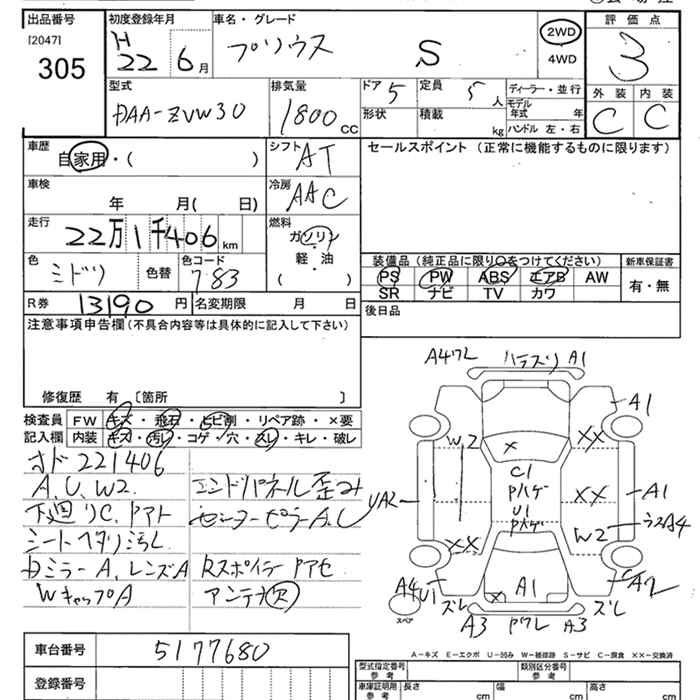 出品番号 初度登録年月 車名・グレード 2WD 評価点
[2047] H プリウス S 4WD 3
305 22 6月
型式 排気量 ドア 5 定員 5人 ディーラー・並行 外装 内装
DAA-ZVW30 1800 CC 形状 積載 kg モデル年式 年 C C
ハンドル 左・右
車歴 シフト セールスポイント (正常に機能するものに限ります)
自家用・( ) AT
車検 冷房
年 月( 日) AAC
走行 燃料
22万1千406km ガソリン
色 色コード 軽・油 装備品 (純正品に限り○をつけてください) 新車保証書
ミドリ 色替 783 ( ) PS PW ABS エアB AW 有・無
R券 13190円 名変期限 月 日 SR ナビ TV カワ
注意事項申告欄 (不具合内容等は具体的に記入して下さい) 後日品
修復歴 有 [箇所 ]
検査員 FW キズ・飛石・トビ割・リペア跡・×要
記入欄 内装 キズ・汚レ・コゲ・穴・スレ・キレ・破レ
オド221406
A,U,W2 エンドパネル歪み
下廻りC,Pアト センターピラーA,U
シートヘタリ汚レ
Dミラー A,レンズA RスポイラーPアセ
WキャップA アンテナ欠
A4ワレ ハラズリ A1
A1
W2 × ××
C1
Pハゲ
UA2 U1 ×× A1
Pハゲ
W2 ラスA4
××
A4U1 A1 A2
ズレ × ズレ
スペア A3 Pワレ A3
A-キズ E-エクボ U-凹み W-補修跡 S-サビ C-腐食 ××-交換済
車台番号 5177680
型式指定番号 参考 類別区分番号 参考
登録番号 車庫証明用 参考 長さ cm 幅 cm 高さ cm